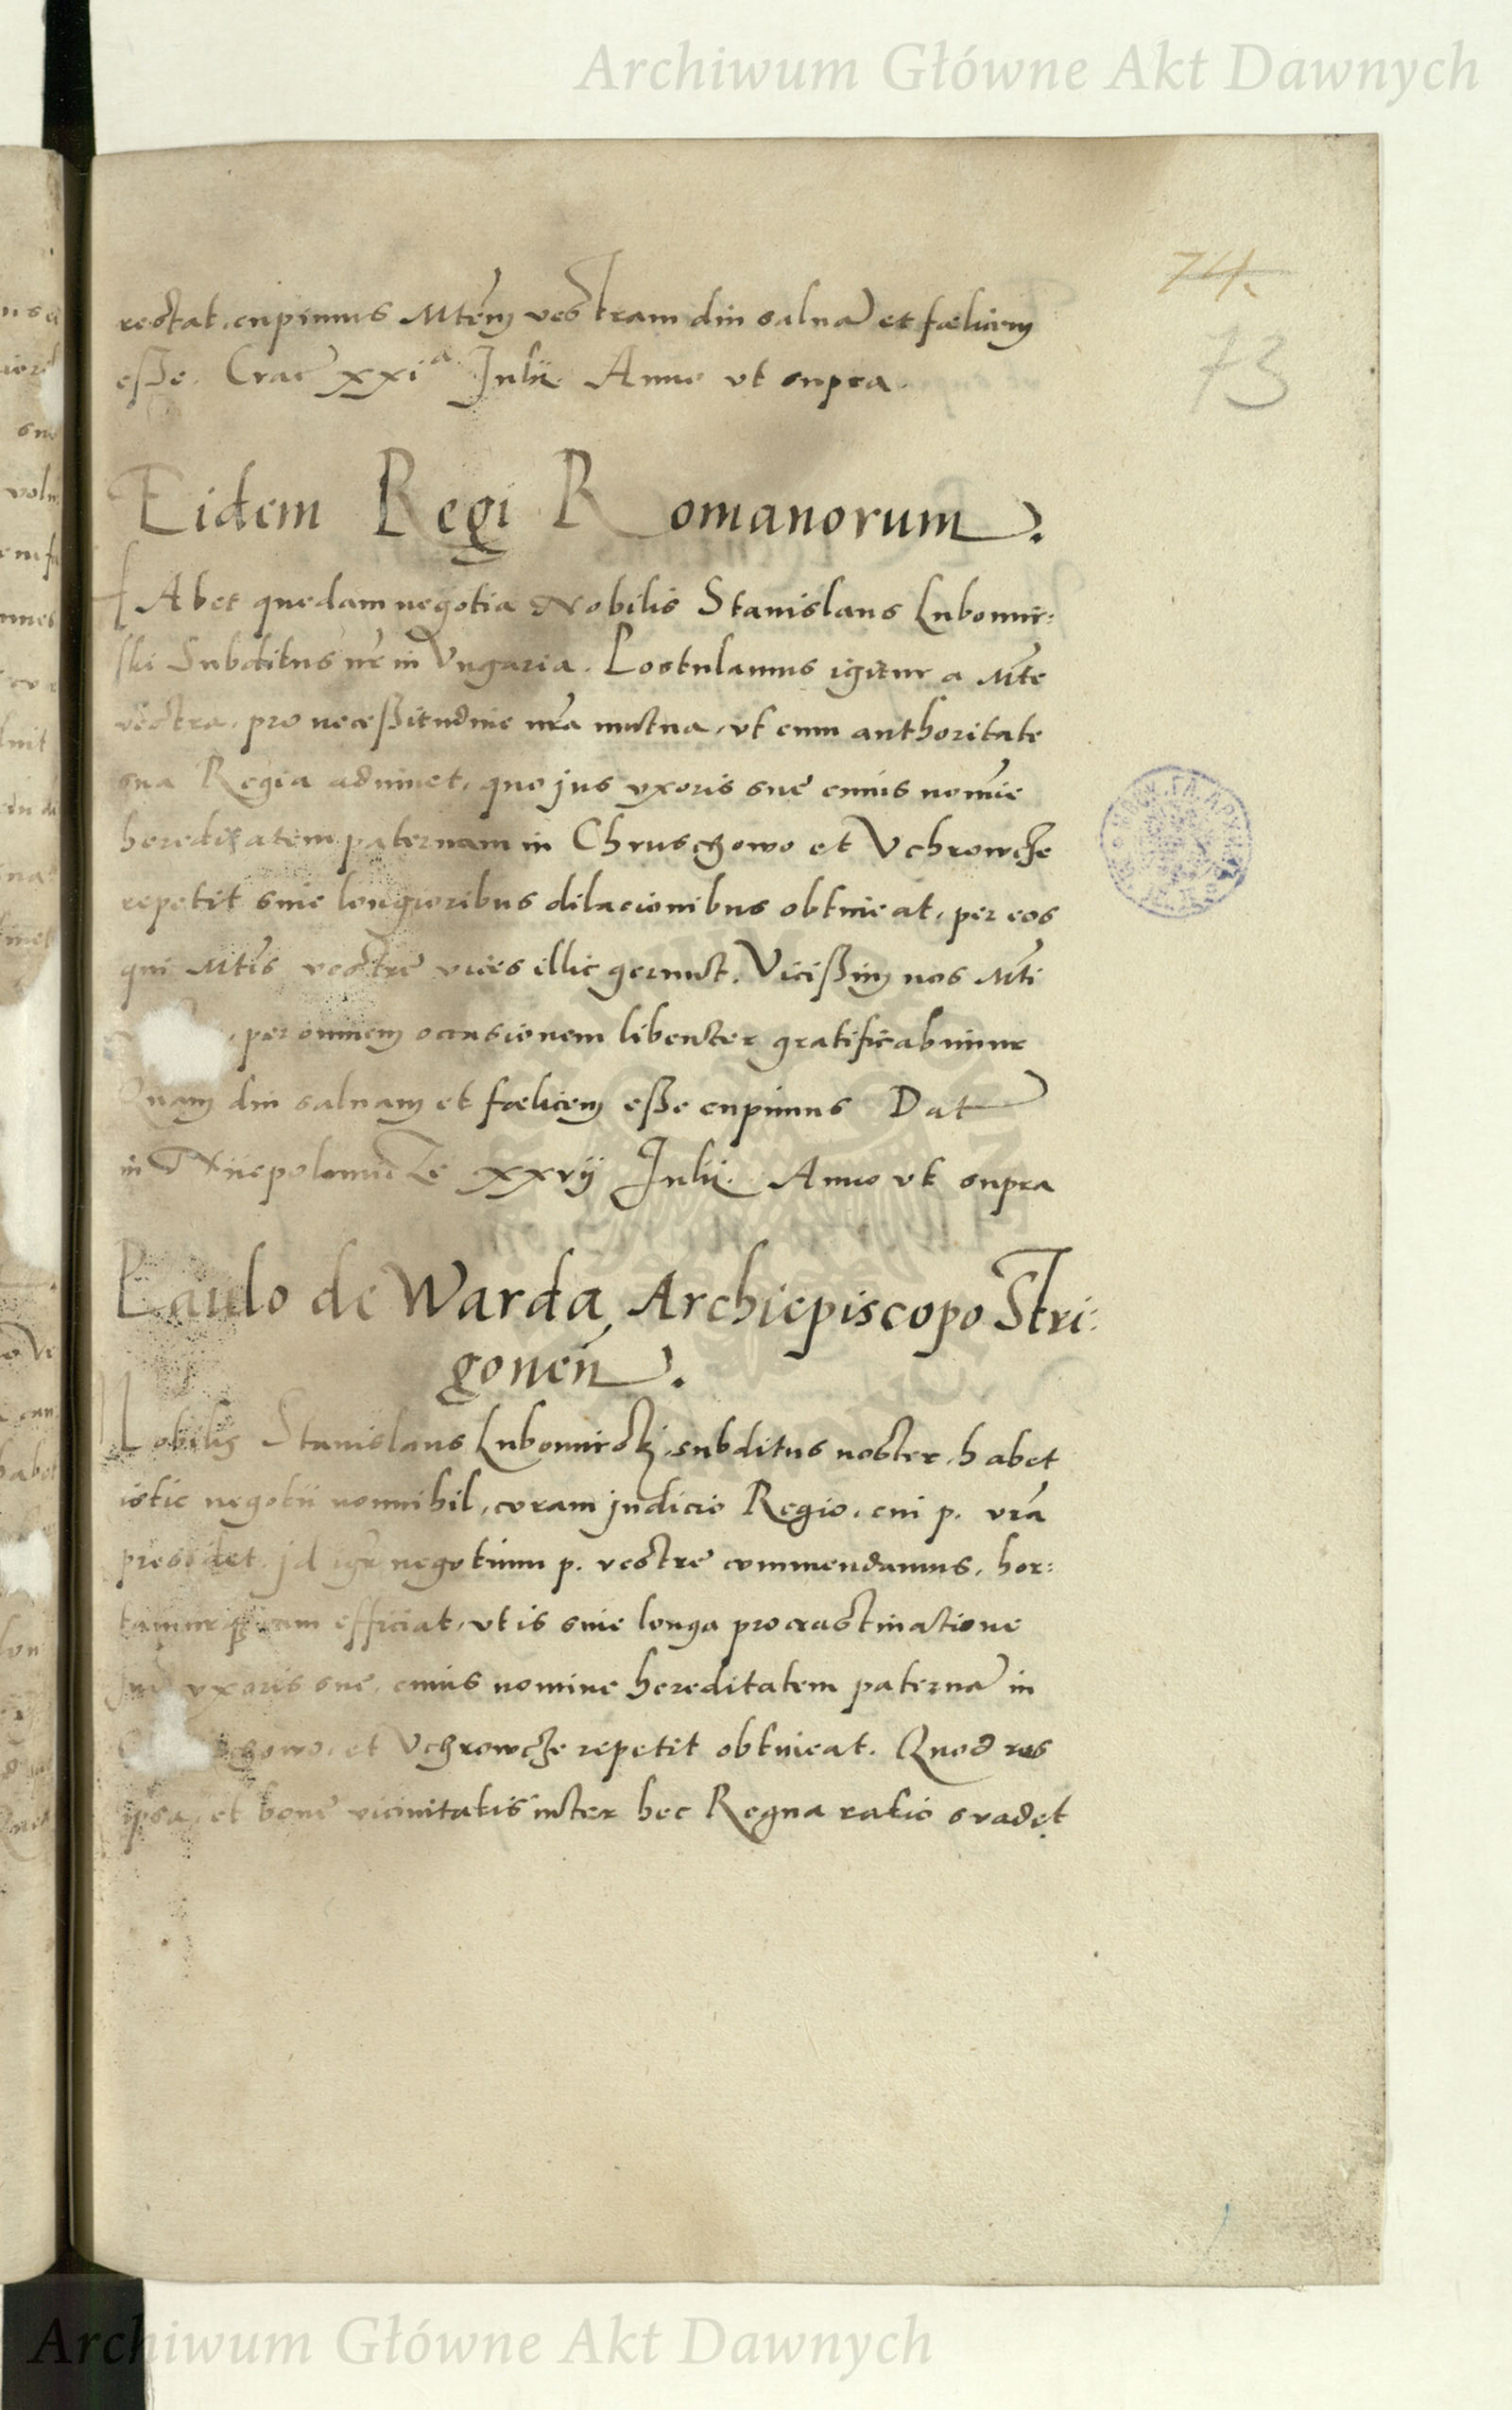 Archiwum Główne Akt Dawnych
74.
73
restat. cupimus Mtem vestram diu salua et fælicem
esse. Crac xxi a Julii Anno vt supra.
Eidem Regi Romanorum.
HAbet quedam negotia Nobilis Stanislaus Lubomir:
ski Subditus nr in Vngaria. Postulamus igitur a Mte
vestra, pro neceßitudine nra mutua, vt eum authoritate
sua Regia adiuuet, quo jus vxoris sue cuius nomie
hereditatem paternam in Chruscżowo et Vchrowcże
repetit sine longioribus dilacionibus obtineat, per eos
qui Mtis vestre vices illic gerunt. Vicißim nos Mti
, per omnem occasionem libenter gratificabimur
Quam diu saluam et fælicem eße cupimus Dat
in Niepolomicze xxvij Julii. Anno vt supra
Paulo de Warda Archiepiscopo Stri:
gonen.
Nobilis Stanislaus Lubomirskj, subditus noster, habet
istic negotii nonnihil, coram judicio Regio, cui p. vra
presidet, jd igr negotium p. vestre commendamus, hor:
tamurq; eam efficiat, vt is sine longa procrastinatione
jus vxoris sue, cuius nomine hereditatem paterna in
cżowo, et Vchrowcże repetit obtineat. Quod res
ipsa, et bone vicinitatis inter hec Regna ratio svadet
Archiwum Główne Akt Dawnych